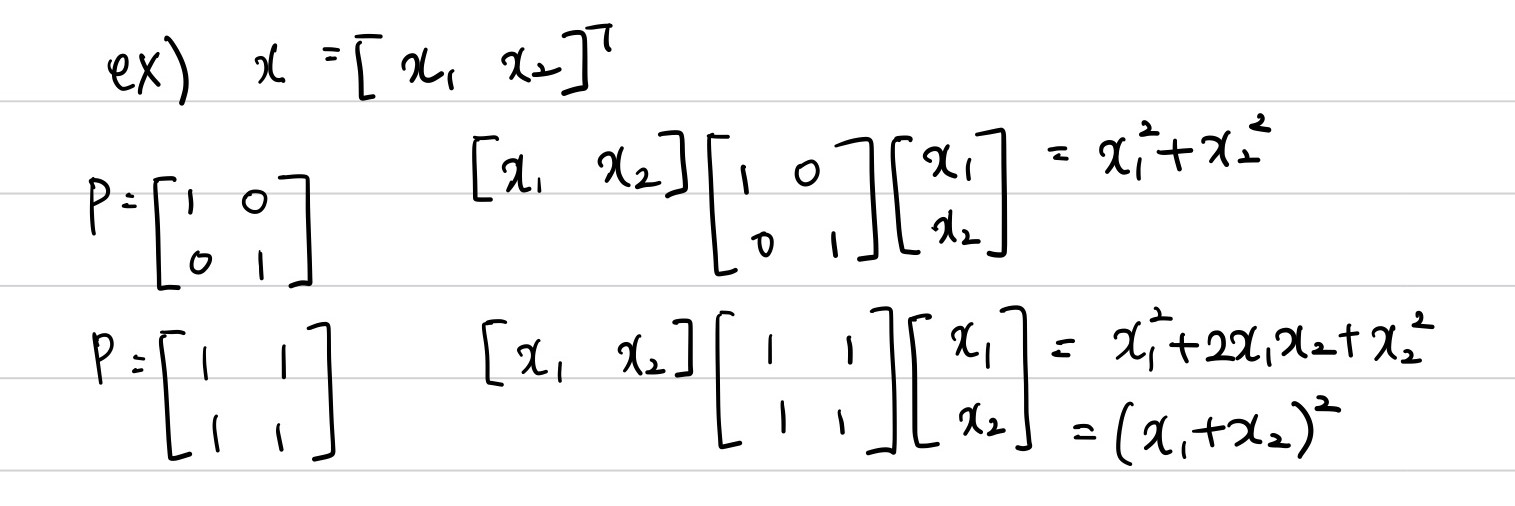 ex) x = [x₁ x₂]ᵀ
P = [1 0; 0 1] [x₁ x₂] [1 0; 0 1] [x₁; x₂] = x₁² + x₂²
P = [1 1; 1 1] [x₁ x₂] [1 1; 1 1] [x₁; x₂] = x₁² + 2x₁x₂ + x₂²
= (x₁ + x₂)²